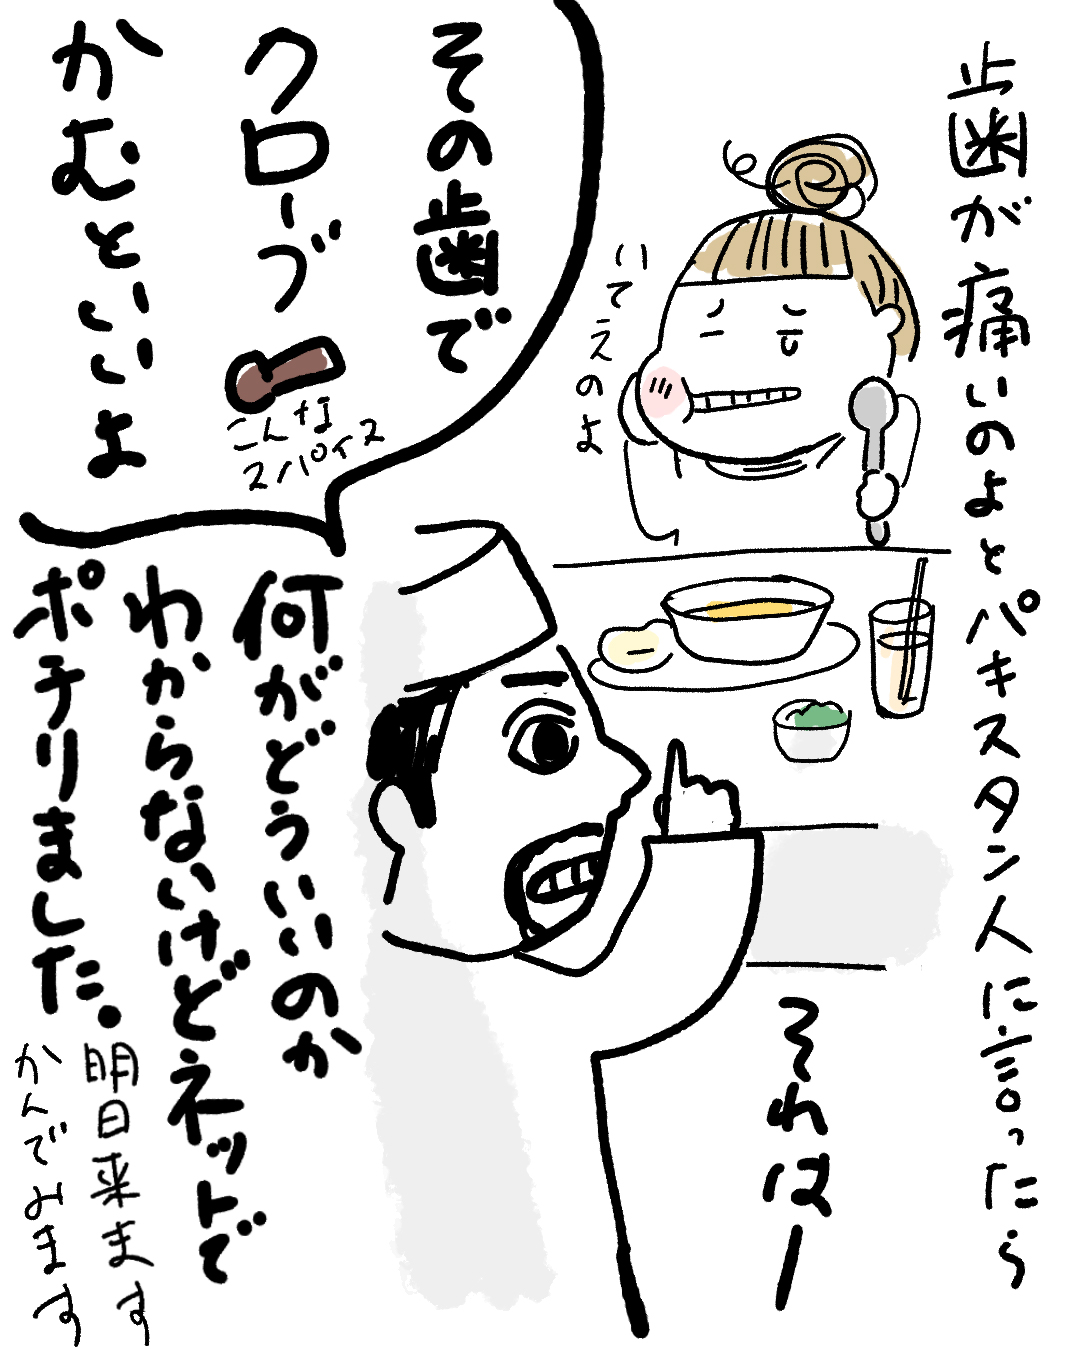 歯が痛いのよとパキスタン人に言ったら
いてえのよ
それはー
その歯で
クローブ
こんな
スパイス
かむといいよ
何がどういいのか
わからないけどネットで
ポチリました。
明日来ます
かんでみます